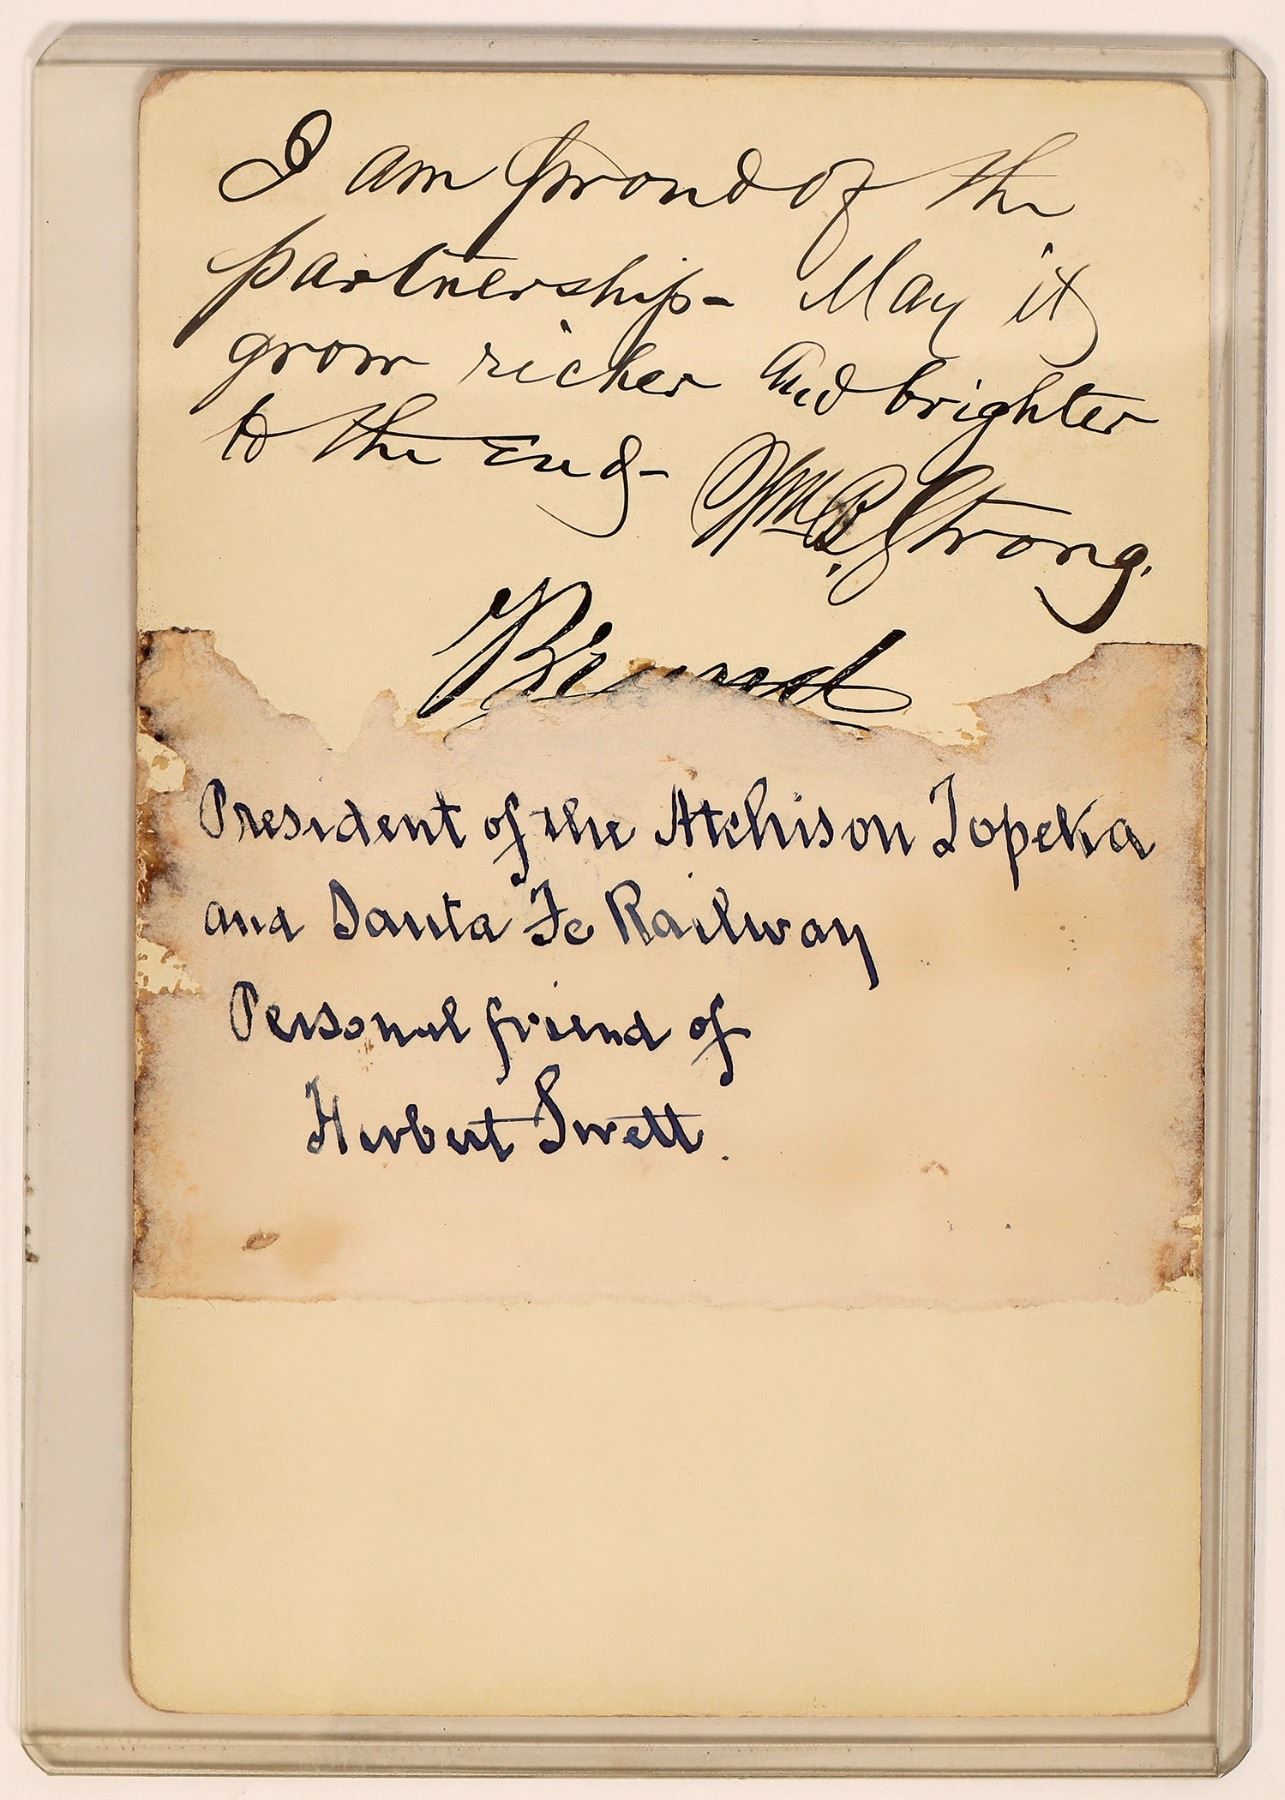 I am proud of the
partnership - May it
grow richer and brighter
to the End -
Wm. B. Strong.
President of the Atchison Topeka
and Santa Fe Railway
Personal friend of
Herbert Swett.